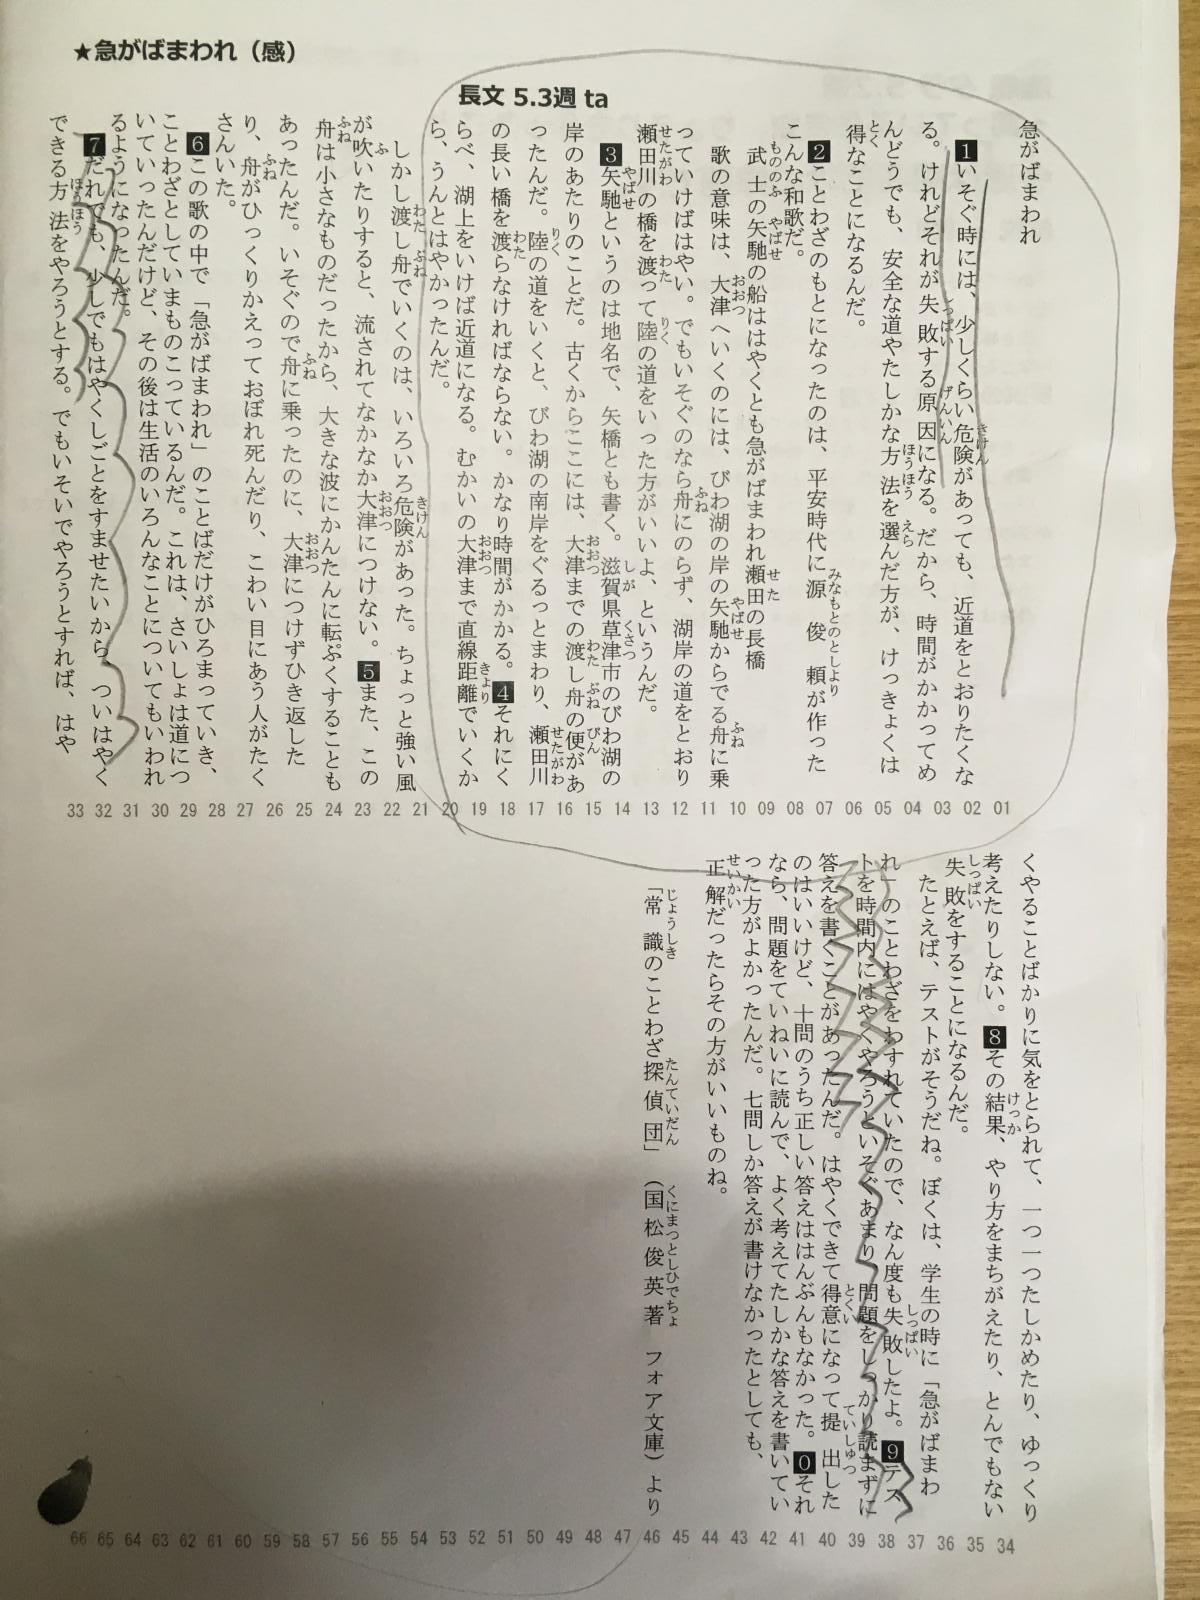 ★急がばまわれ（感）
長文 5.3週 ta
急がばまわれ
1いそぐ時には、少しくらい危険があっても、近道をとおりたくな
る。けれどそれが失敗する原因になる。だから、時間がかかってめ
んどうでも、安全な道やたしかな方法を選んだ方が、けっきょくは
得なことになるんだ。
2ことわざのもとになったのは、平安時代に源俊頼が作った
こんな和歌だ。
武士の矢馳の船ははやくとも急がばまわれ瀬田の長橋
歌の意味は、大津へいくのには、びわ湖の岸の矢馳からでる舟に乗
っていけばはやい。でもいそぐのなら舟にのらず、湖岸の道をとおり
瀬田川の橋を渡って陸の道をいった方がいいよ、というんだ。
3矢馳というのは地名で、矢橋とも書く。滋賀県草津市のびわ湖の
岸のあたりのことだ。古くからここには、大津までの渡し舟の便があ
ったんだ。陸の道をいくと、びわ湖の南岸をぐるっとまわり、瀬田川
の長い橋を渡らなければならない。かなり時間がかかる。4それにく
らべ、湖上をいけば近道になる。むかいの大津まで直線距離でいくか
ら、うんとはやかったんだ。
しかし渡し舟でいくのは、いろいろ危険があった。ちょっと強い風
が吹いたりすると、流されてなかなか大津につけない。5また、この
舟は小さなものだったから、大きな波にかんたんに転ぷくすることも
あったんだ。いそぐので舟に乗ったのに、大津につけずひき返した
り、舟がひっくりかえっておぼれ死んだり、こわい目にあう人がたく
さんいた。
6この歌の中で「急がばまわれ」のことばだけがひろまっていき、
ことわざとしていまものこっているんだ。これは、さいしょは道につ
いていったんだけど、その後は生活のいろんなことについてもいわれ
るようになったんだ。
7だれでも、少しでもはやくしごとをすませたいから、ついはやく
できる方法をやろうとする。でもいそいでやろうとすれば、はや
01 02 03 04 05 06 07 08 09 10 11 12 13 14 15 16 17 18 19 20 21 22 23 24 25 26 27 28 29 30 31 32 33
くやることばかりに気をとられて、一つ一つたしかめたり、ゆっくり
考えたりしない。8その結果、やり方をまちがえたり、とんでもない
失敗をすることになるんだ。
たとえば、テストがそうだね。ぼくは、学生の時に「急がばまわ
れ」のことわざをわすれていたので、なん度も失敗したよ。9テス
トを時間内にはやくやろうといそぐあまり、問題をしっかり読まずに
答えを書くことがあったんだ。はやくできて得意になって提出した
のはいいけど、十問のうち正しい答えははんぶんもなかった。0それ
なら、問題をていねいに読んで、よく考えてたしかな答えを書いてい
った方がよかったんだ。七問しか答えが書けなかったとしても、
正解だったらその方がいいものね。
「常識のことわざ探偵団」（国松俊英著 フォア文庫）より
34 35 36 37 38 39 40 41 42 43 44 45 46 47 48 49 50 51 52 53 54 55 56 57 58 59 60 61 62 63 64 65 66